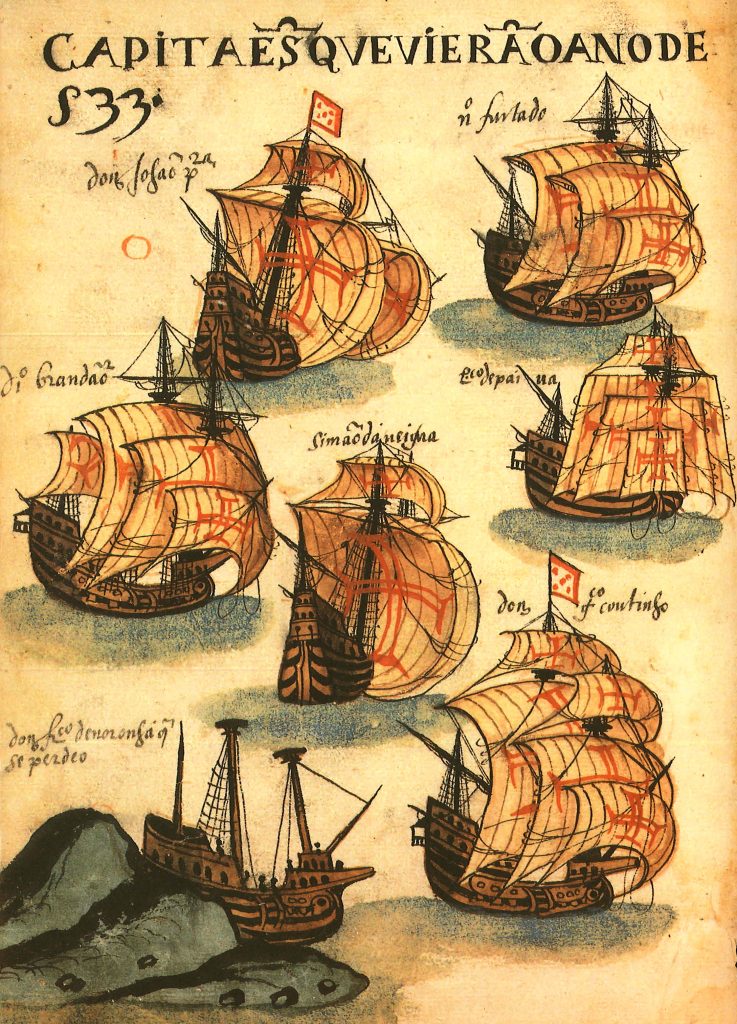 CAPITAẼS QVE VIERÃO O ANO DE
533·
dom Johaõ pʳᵃ
nº furtado
dº brandaõ
frᶜᵒ de paiva
simaõ da veigua
dom
gᶜᵒ coutinho
dom frᶜᵒ de noronha q̃
se perdeo